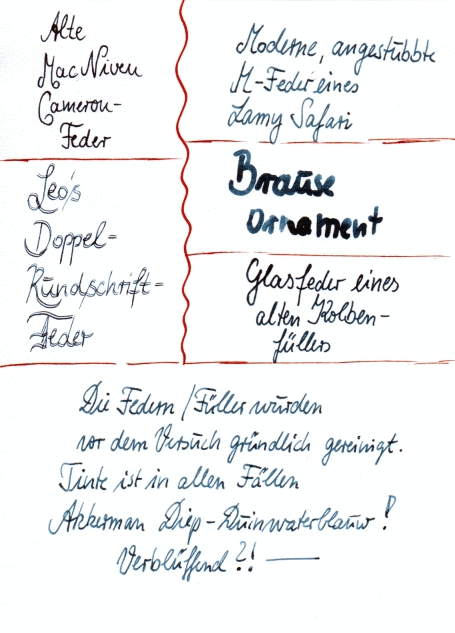 Alte
Mac Niven
Cameron-
Feder
Moderne, angestubbte
M-Feder eines
Lamy Safari
Leo's
Doppel-
Rundschrift-
Feder
Brause
Ornament
Glasfeder eines
alten Kolben-
füllers
Die Federn / Füller wurden
vor dem Versuch gründlich gereinigt.
Tinte ist in allen Fällen
Akkerman Diep-Duinwaterblauw!
Verblüffend?! —